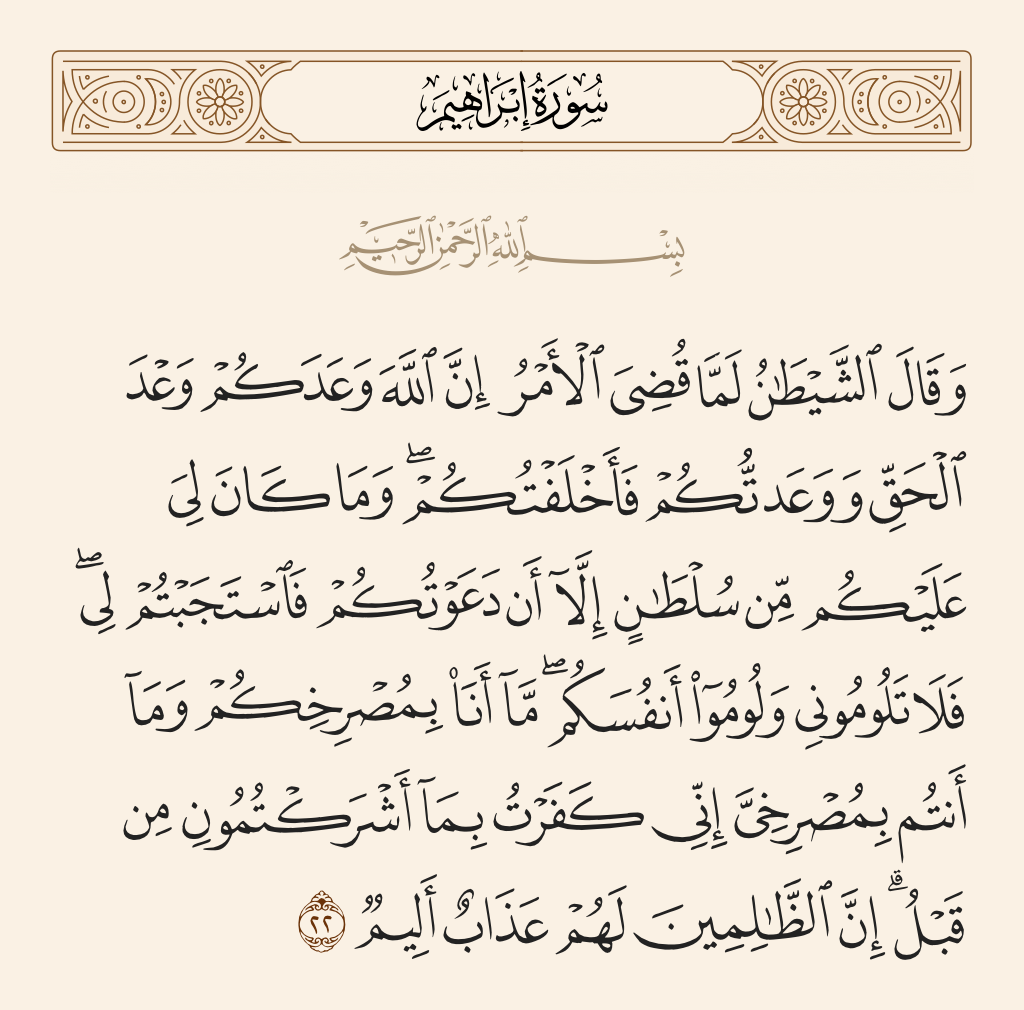 سُورَةُ إِبْرَاهِيمَ
بِسْمِ ٱللَّهِ ٱلرَّحْمَٰنِ ٱلرَّحِيمِ
وَقَالَ ٱلشَّيْطَٰنُ لَمَّا قُضِىَ ٱلْأَمْرُ إِنَّ ٱللَّهَ وَعَدَكُمْ وَعْدَ
ٱلْحَقِّ وَوَعَدتُّكُمْ فَأَخْلَفْتُكُمْ ۖ وَمَا كَانَ لِىَ
عَلَيْكُم مِّن سُلْطَٰنٍ إِلَّآ أَن دَعَوْتُكُمْ فَٱسْتَجَبْتُمْ لِى ۖ
فَلَا تَلُومُونِى وَلُومُوٓا۟ أَنفُسَكُم ۖ مَّآ أَنَا۠ بِمُصْرِخِكُمْ وَمَآ
أَنتُم بِمُصْرِخِىَّ إِنِّى كَفَرْتُ بِمَآ أَشْرَكْتُمُونِ مِن
قَبْلُ ۗ إِنَّ ٱلظَّٰلِمِينَ لَهُمْ عَذَابٌ أَلِيمٌ ٢٢